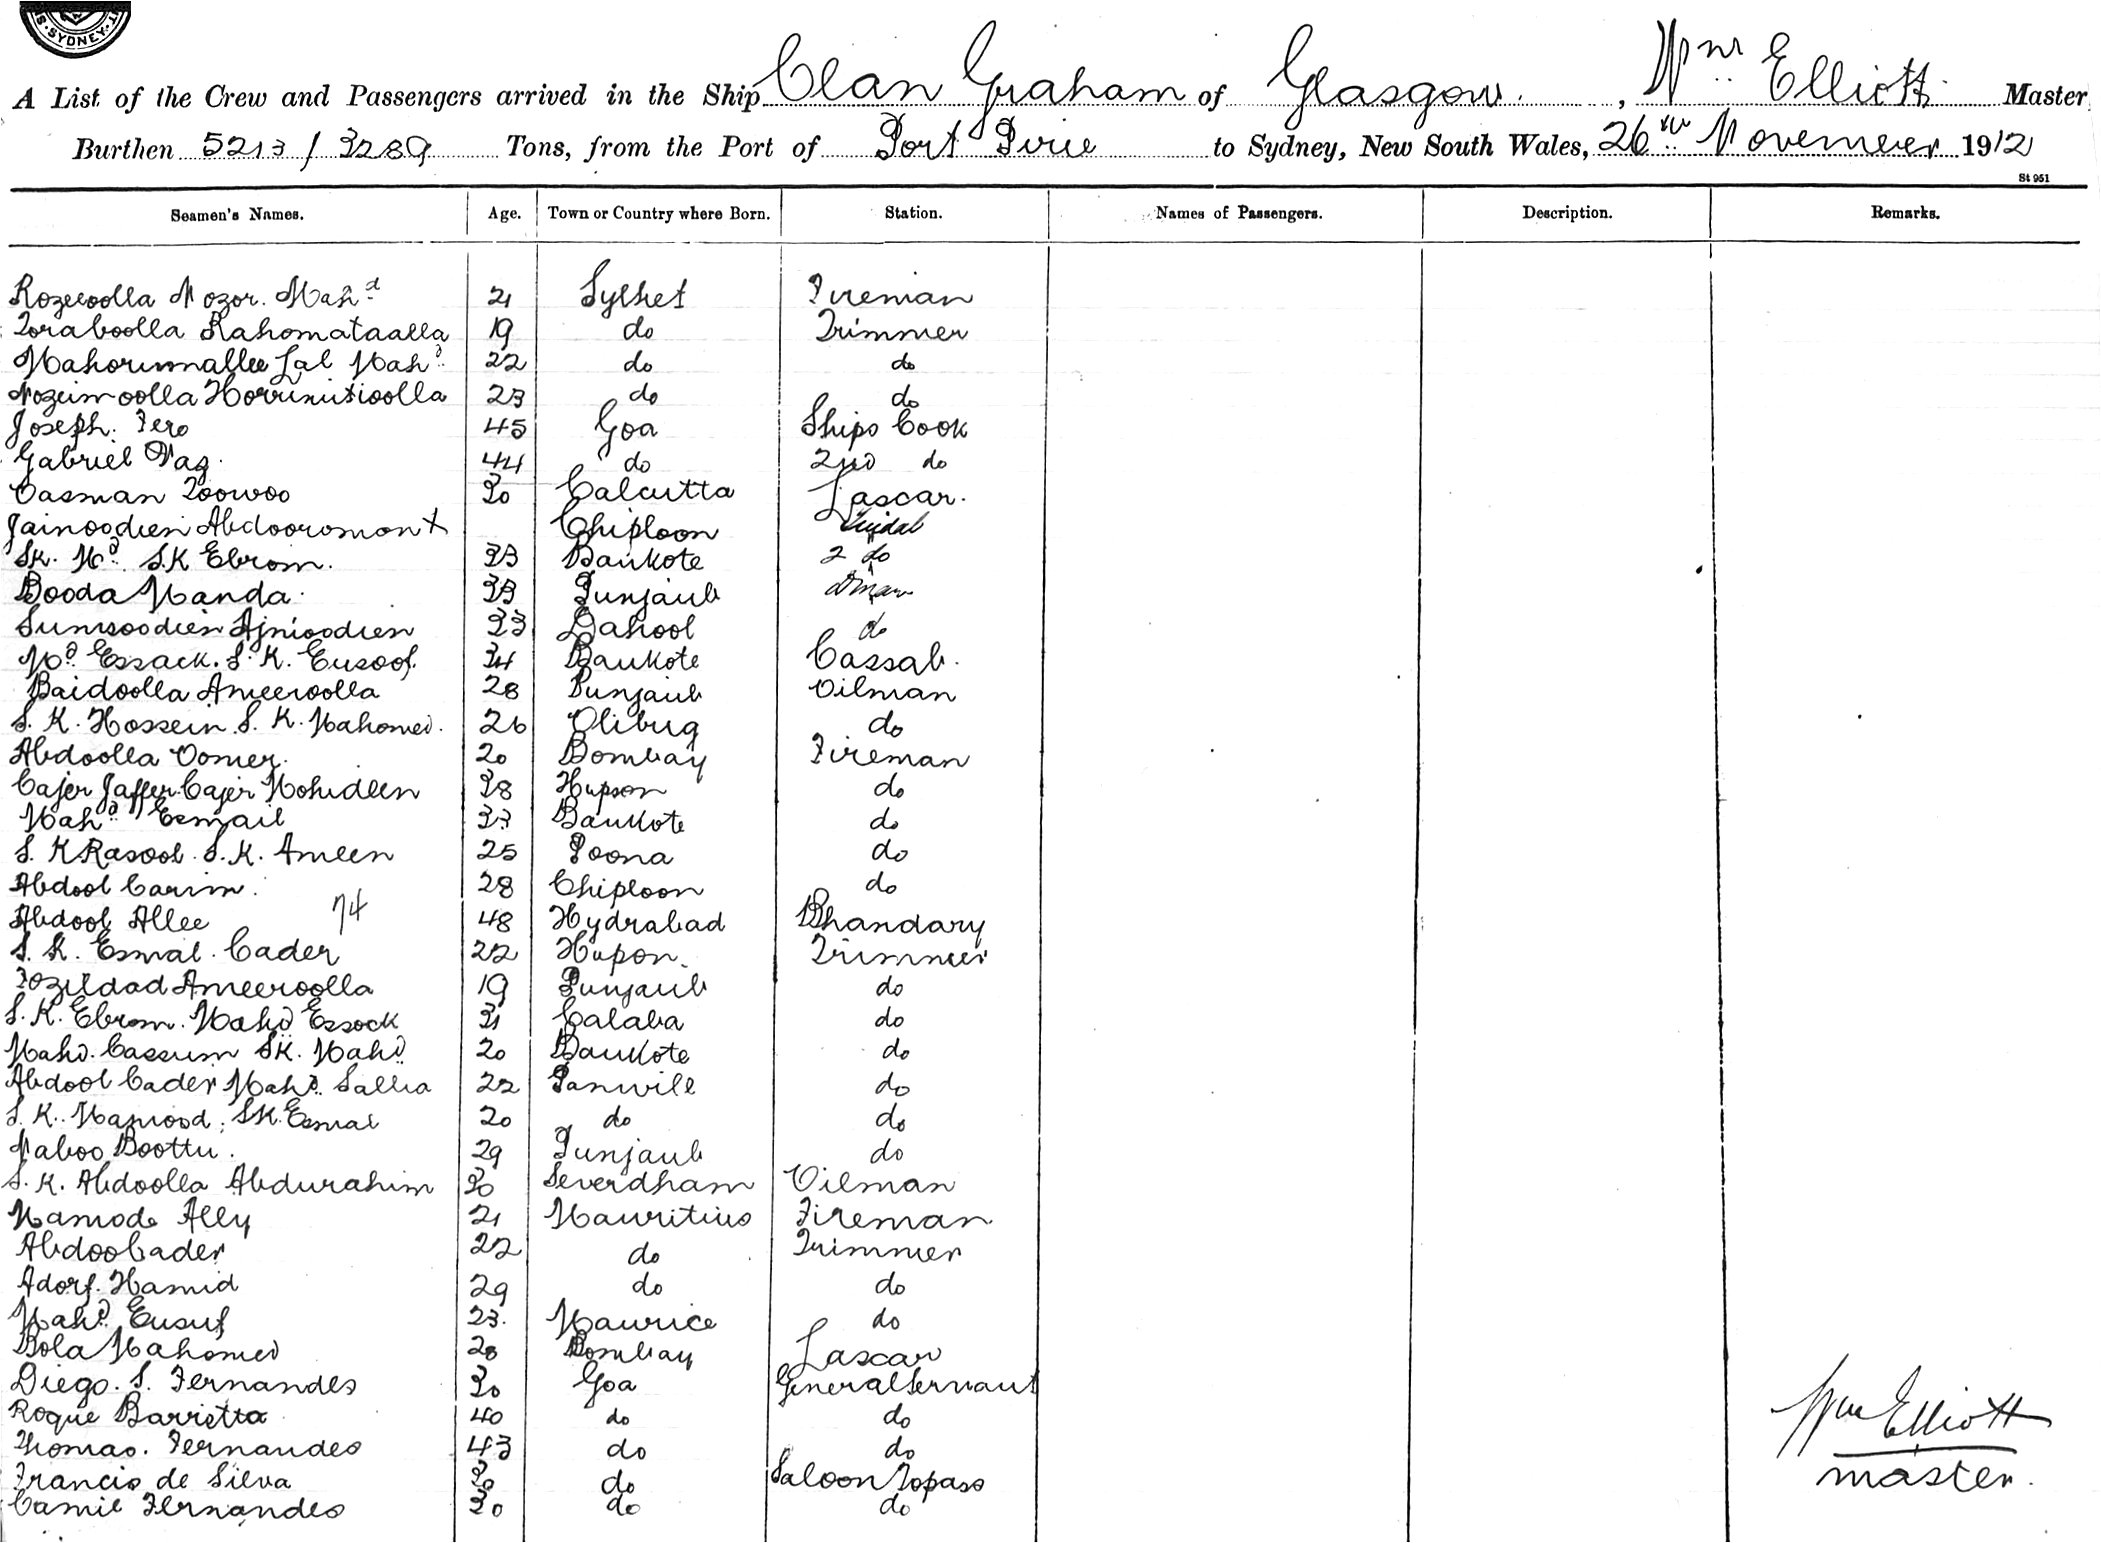 SYDNEY
A List of the Crew and Passengers arrived in the Ship Clan Graham of Glasgow, Wm Elliott Master
Burthen 5213 / 3289 Tons, from the Port of Port Pirie to Sydney, New South Wales, 26th November 1912
St 951
Seamen's Names. Age. Town or Country where Born. Station. Names of Passengers. Description. Remarks.
Rozeeoolla Nozor. Mahd 21 Sylhet Fireman
Toraboolla Rahomataalla 19 do Trimmer
Mahorumallee Lal Mahd 22 do do
Nozeimoolla 23 do do
Joseph. Fero 45 Goa Ships Cook
Gabriel Vaz. 44 do 2nd do
Oasman Toowoo 30 Calcutta Lascar.
Jainoodien Abdooromon X Chiploon Tindal
SK. Md. S.K Ebrom. 33 Bankote 2 do
Booda Nanda. 33 Punjaub
Sumsoodien Ajnioodien 33 Dahool do
Md Essack. S. K. Eusoof. 34 Bankote Cassab.
Baidoolla Ameeroolla 28 Punjaub Oilman
S. K. Hossein. S. K. Mahomed. 26 Olibug do
Abdoolla Oomer. 20 Bombay Fireman
Cajer Jaffer Cajer Mohideen 38 Hupson do
Mahd Esmail 33 Bankote do
S. K Rasool. S. K. Ameen 25 Poona do
Abdool Carim. 28 Chiploon do
Abdool Allee 74 48 Hydrabad Bhandary
S. K. Esmal. Cader 22 Hupon. Trimmer
Fozildad Ameeroolla 19 Punjaub do
S. K. Ebrom. Mahd Essock 31 Calaba do
Mahd. Cassum SK. Mahd 20 Bankote do
Abdool Cader Mahd. Sallia 22 Panwill do
S. K. Mamood. SK. Esmal 20 do do
Naboo Boottu. 29 Punjaub do
S. K. Abdoolla Abdurahim 30 Severdham Oilman
Mamode Ally 21 Mauritius Fireman
Abdoo Cader 22 do Trimmer
Adorf. Hamid 29 do do
Mahd Eusuf 23. Maurice do
Bola Mahomed 28 Bombay Lascar
Diego. S. Fernandes 30 Goa General Servant
Roque Barretta 40 do do
Thomas. Fernandes 43 do do
Francis de Silva 30 do Saloon Topass
Camil Fernandes 30 do do
Wm Elliott
master.